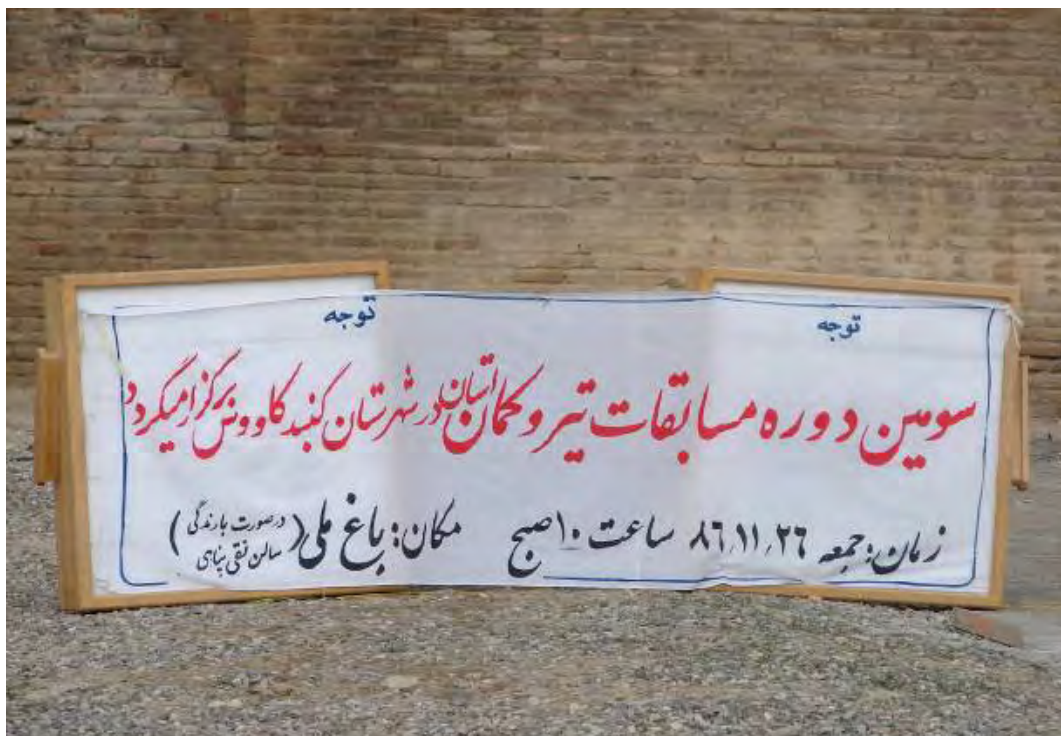 توجه توجه
سومین دوره مسابقات تیر و کمان استان در شهرستان گنبد کاووس برگزار میگردد
زمان: جمعه ۸۶٫۱۱٫۲۶ ساعت ۱۰ صبح مکان: باغ ملی (در صورت بارندگی
سالن تقی پناهی)